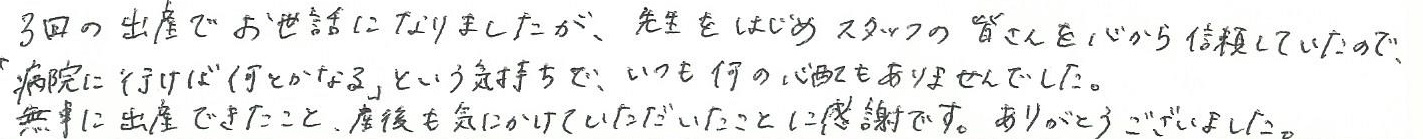 3回の出産でお世話になりましたが、先生をはじめスタッフの皆さんを心から信頼していたので、
「病院に行けば何とかなる」という気持ちで、いつも何の心配もありませんでした。
無事に出産できたこと、産後も気にかけていただいたことに感謝です。ありがとうございました。